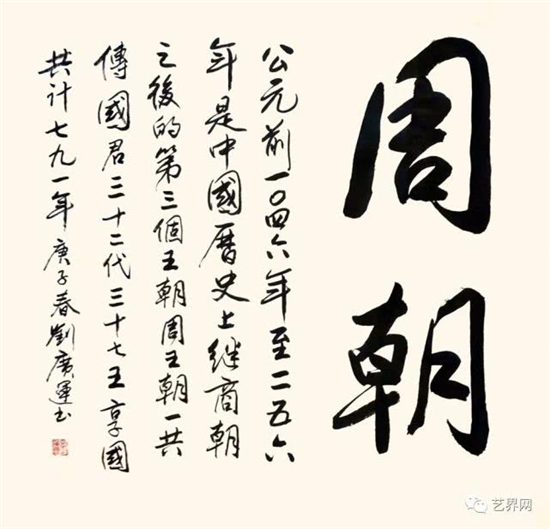 周朝
公元前一〇四六年至二五六
年是中國曆史上继商朝
之後的第三個王朝周王朝一共
傳國君三十二代三十七王享國
共计七九一年庚子春劉廣運书
艺界网